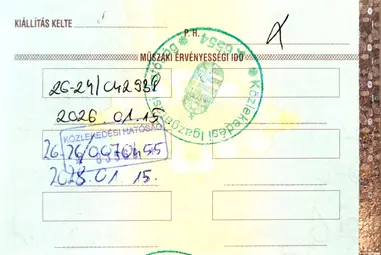 KIÁLLÍTÁS KELTE
P. H.
MŰSZAKI ÉRVÉNYESSÉGI IDŐ
Közlekedési Igazg
26-24/042939
2026.01.15
KÖZLEKEDÉSI HATÓSÁG
26-26/0070455
2028.01.15.